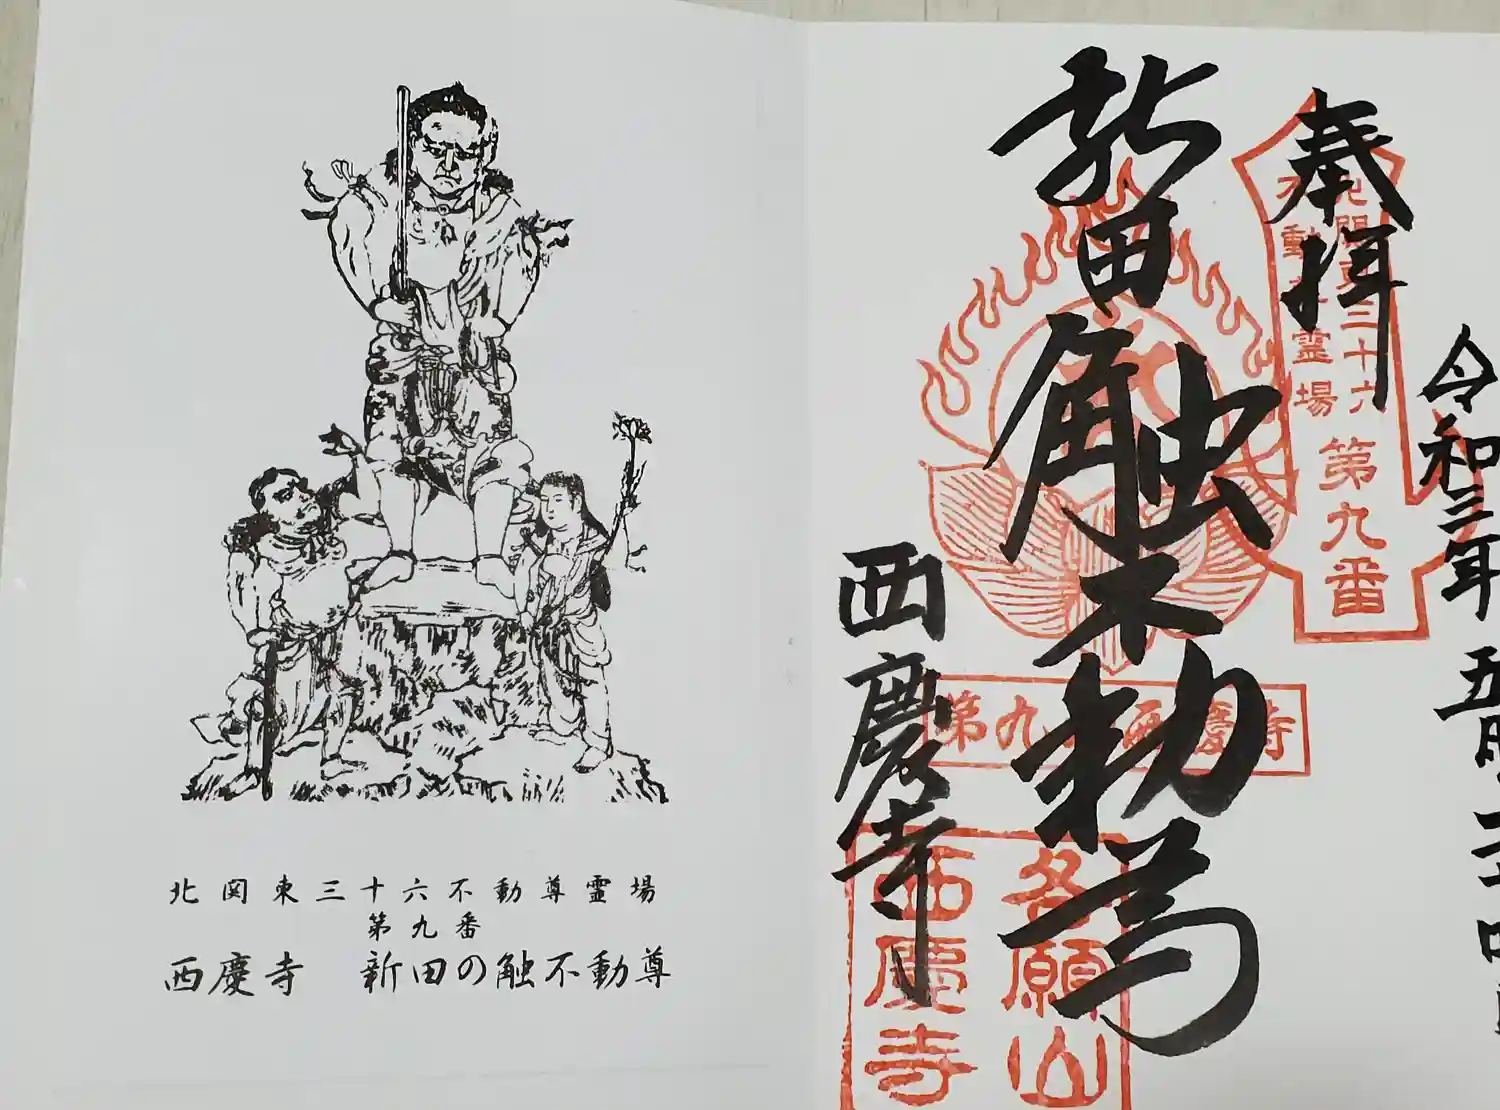 北関東三十六不動尊霊場
第九番
西慶寺 新田の触不動尊
奉拝
令和三年五月
新田触不動尊
西慶寺
北関東三十六
不動尊霊場
第九番
第九 西慶寺
名願山
西慶寺